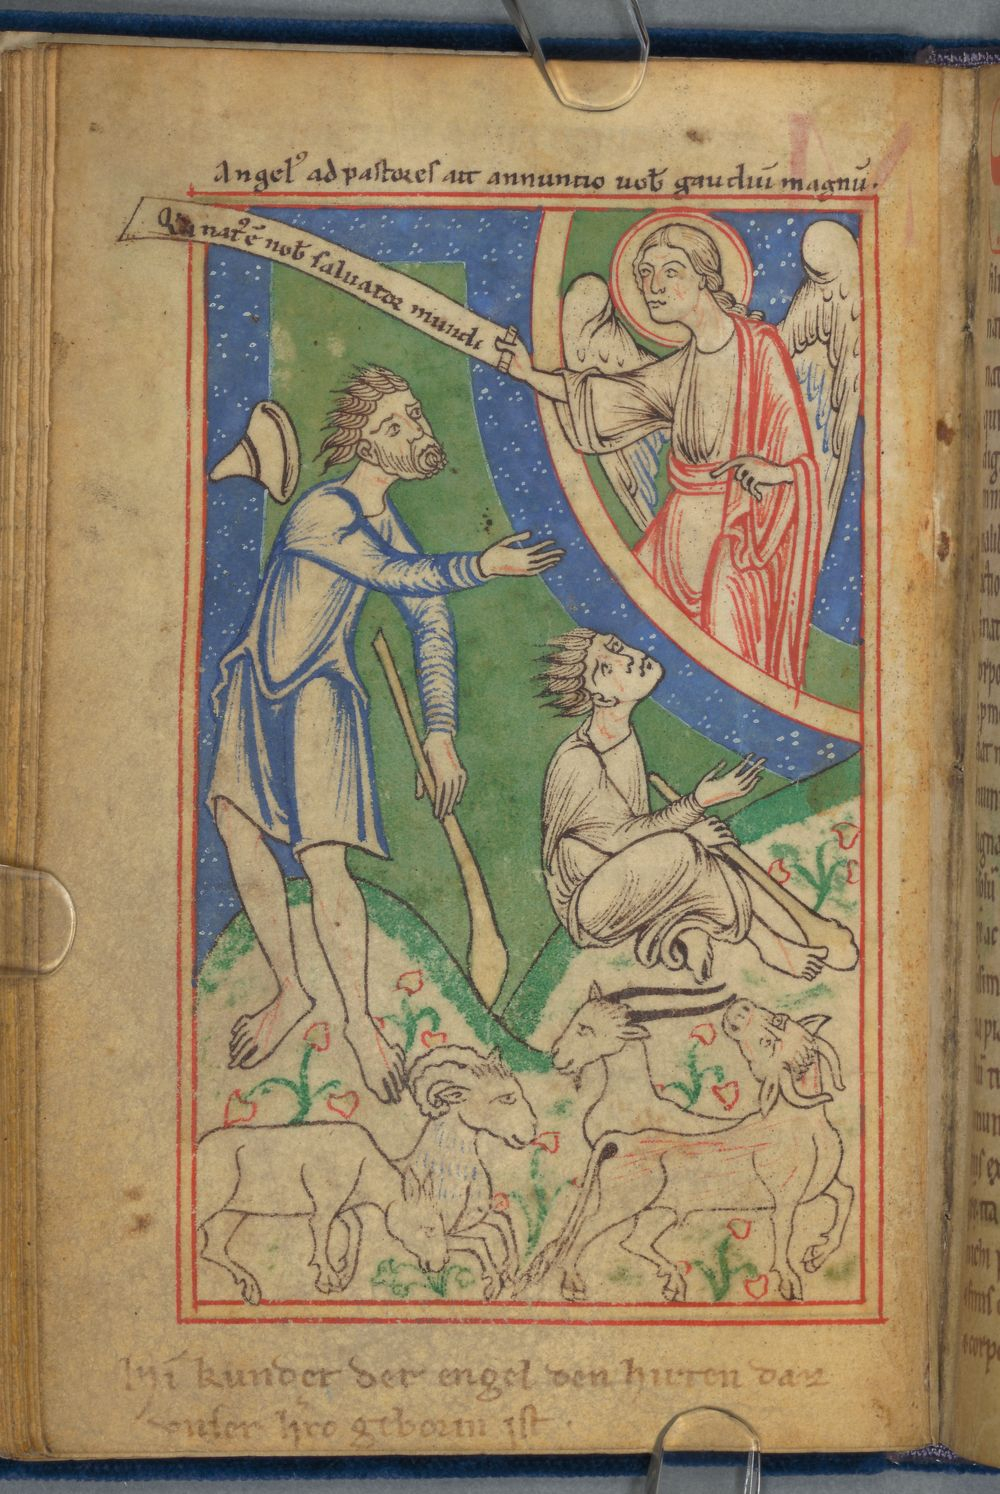 Angelꝰ ad pastores ait annuntio uob̄ gaudiū magnū.
Quia natꝰ ē nob̄ saluator mundi
hỹ kundet der engel den hirten daz
vnser h̄ro geborin jst.